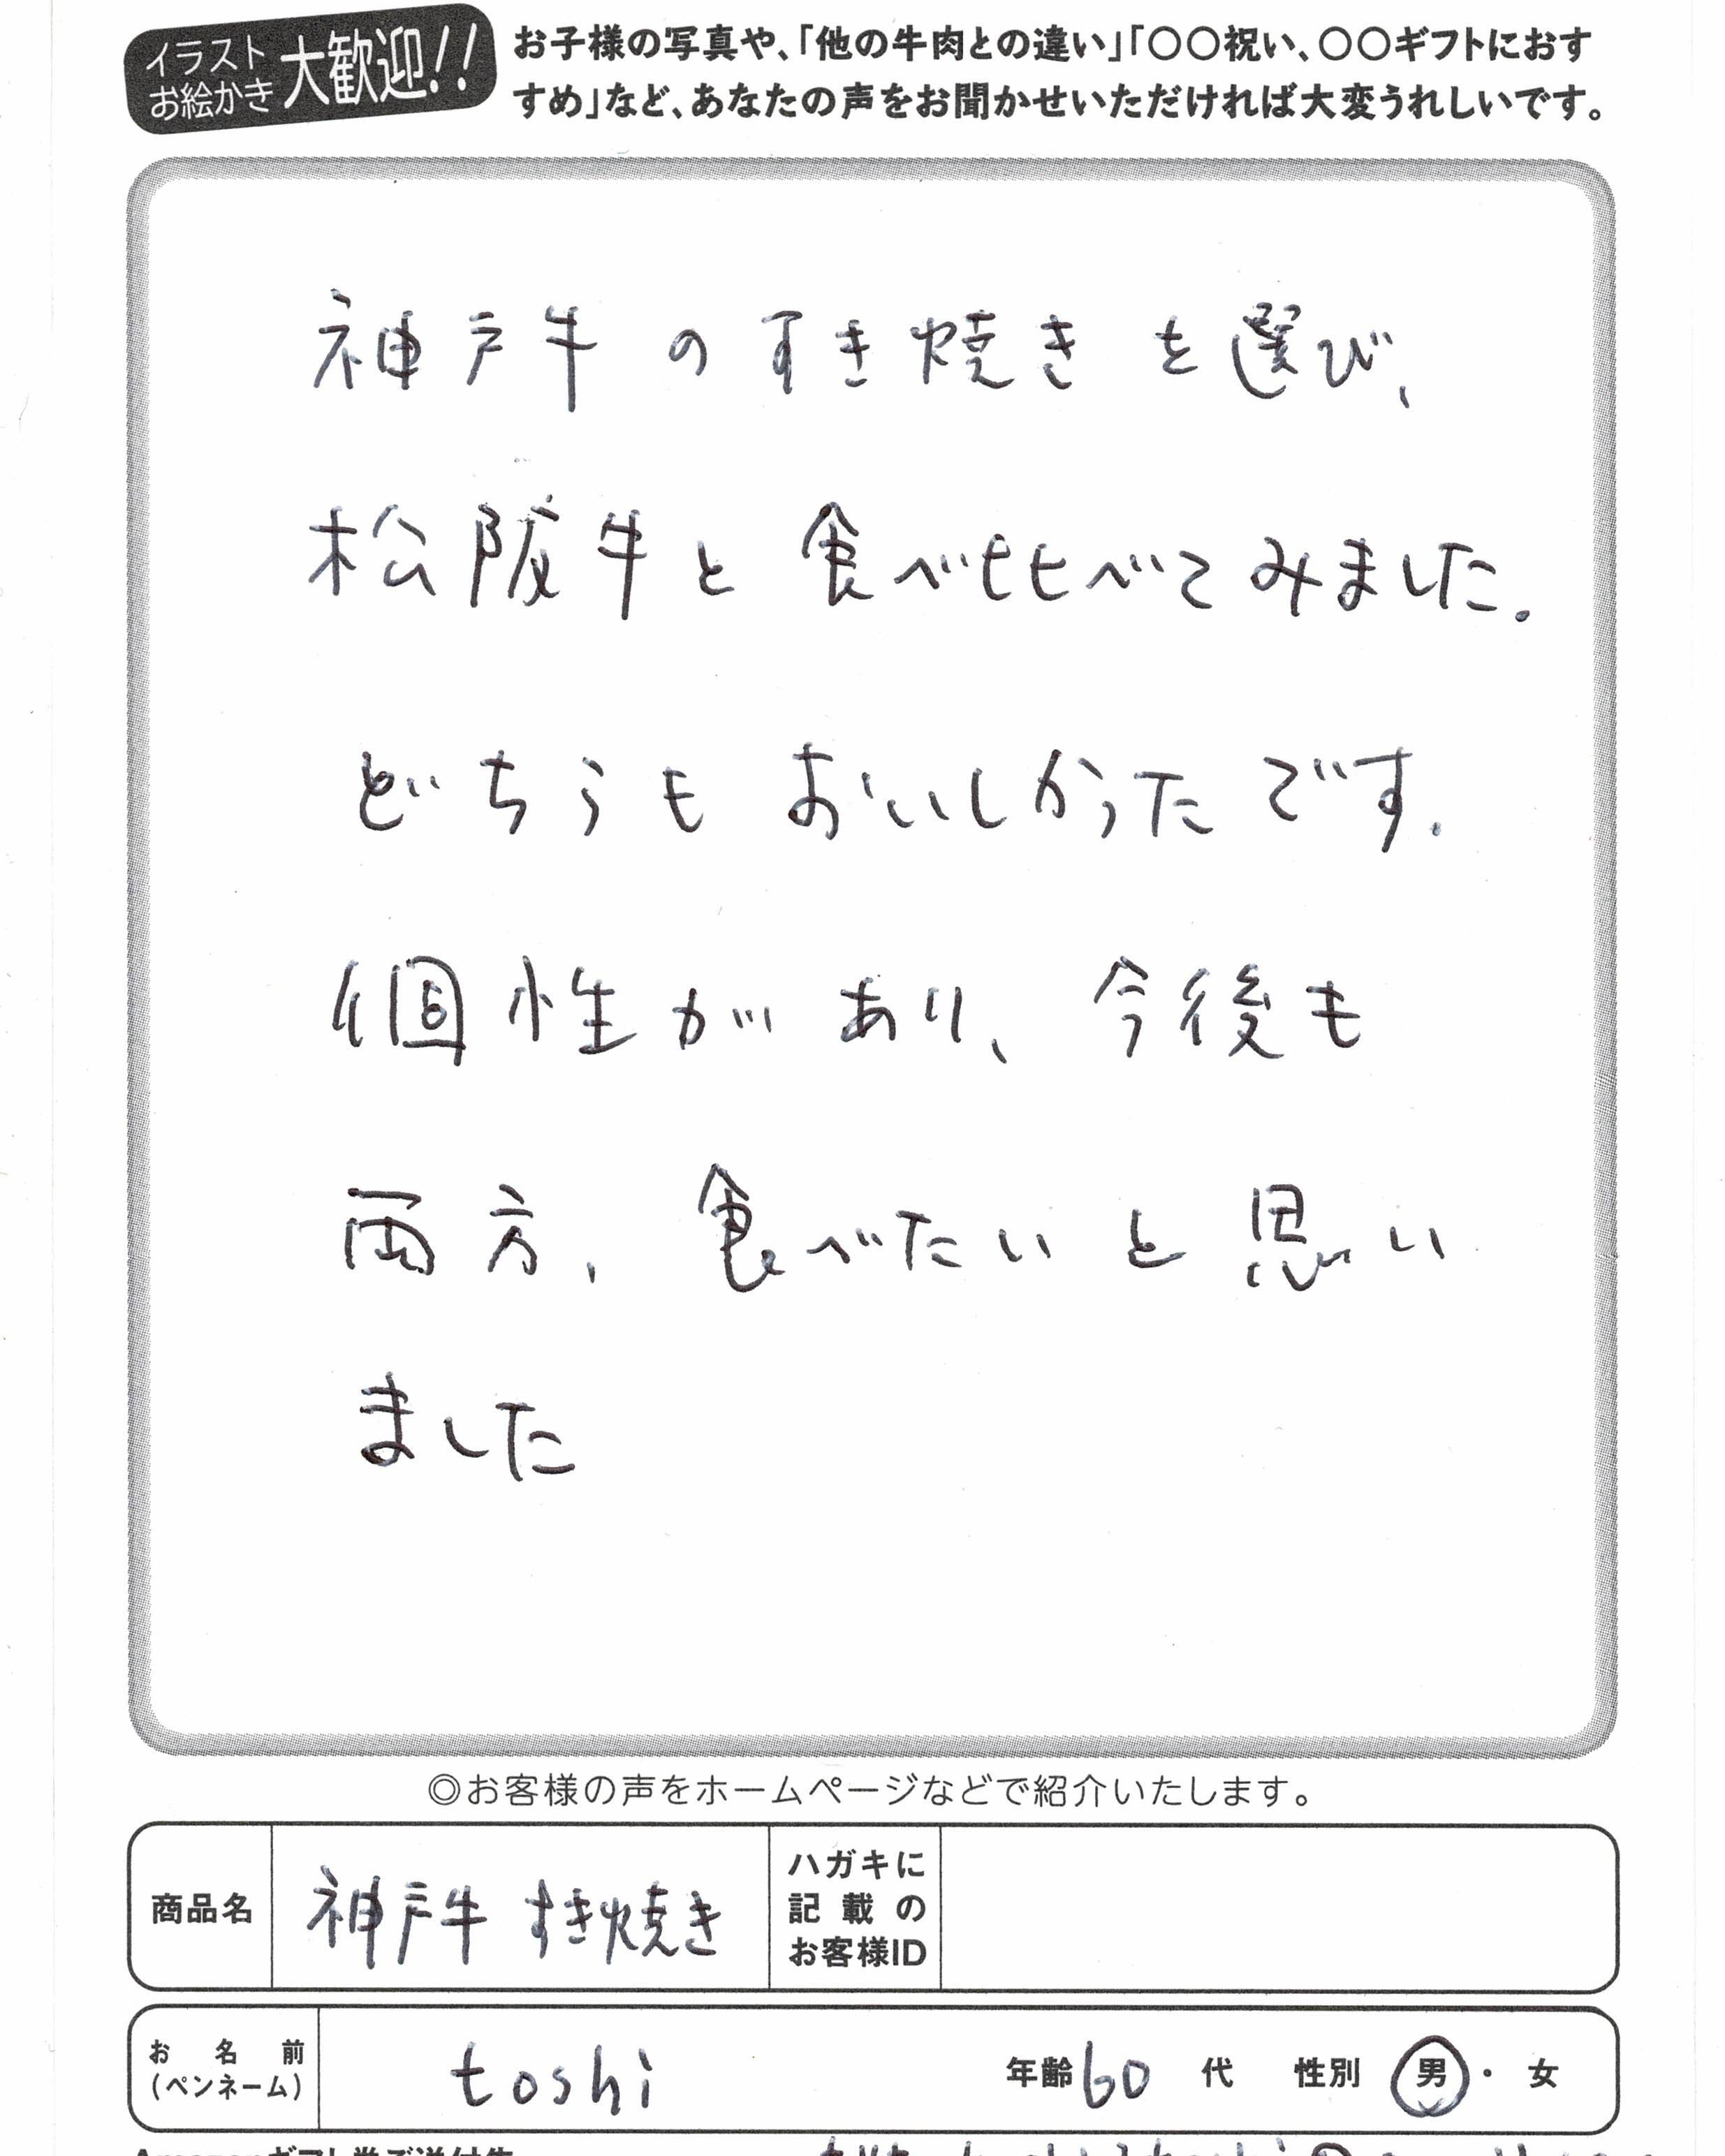 イラスト
お絵かき
大歓迎!!
お子様の写真や、「他の牛肉との違い」「〇〇祝い、〇〇ギフトにおす
すめ」など、あなたの声をお聞かせいただければ大変うれしいです。
神戸牛のすき焼きを選び、
松阪牛と食べ比べてみました。
どちらもおいしかったです。
個性があり、今後も
両方、食べたいと思い
ました
◎お客様の声をホームページなどで紹介いたします。
商品名 神戸牛 すき焼き
ハガキに
記載の
お客様ID
お名前
(ペンネーム)
toshi 年齢60代 性別 男・女